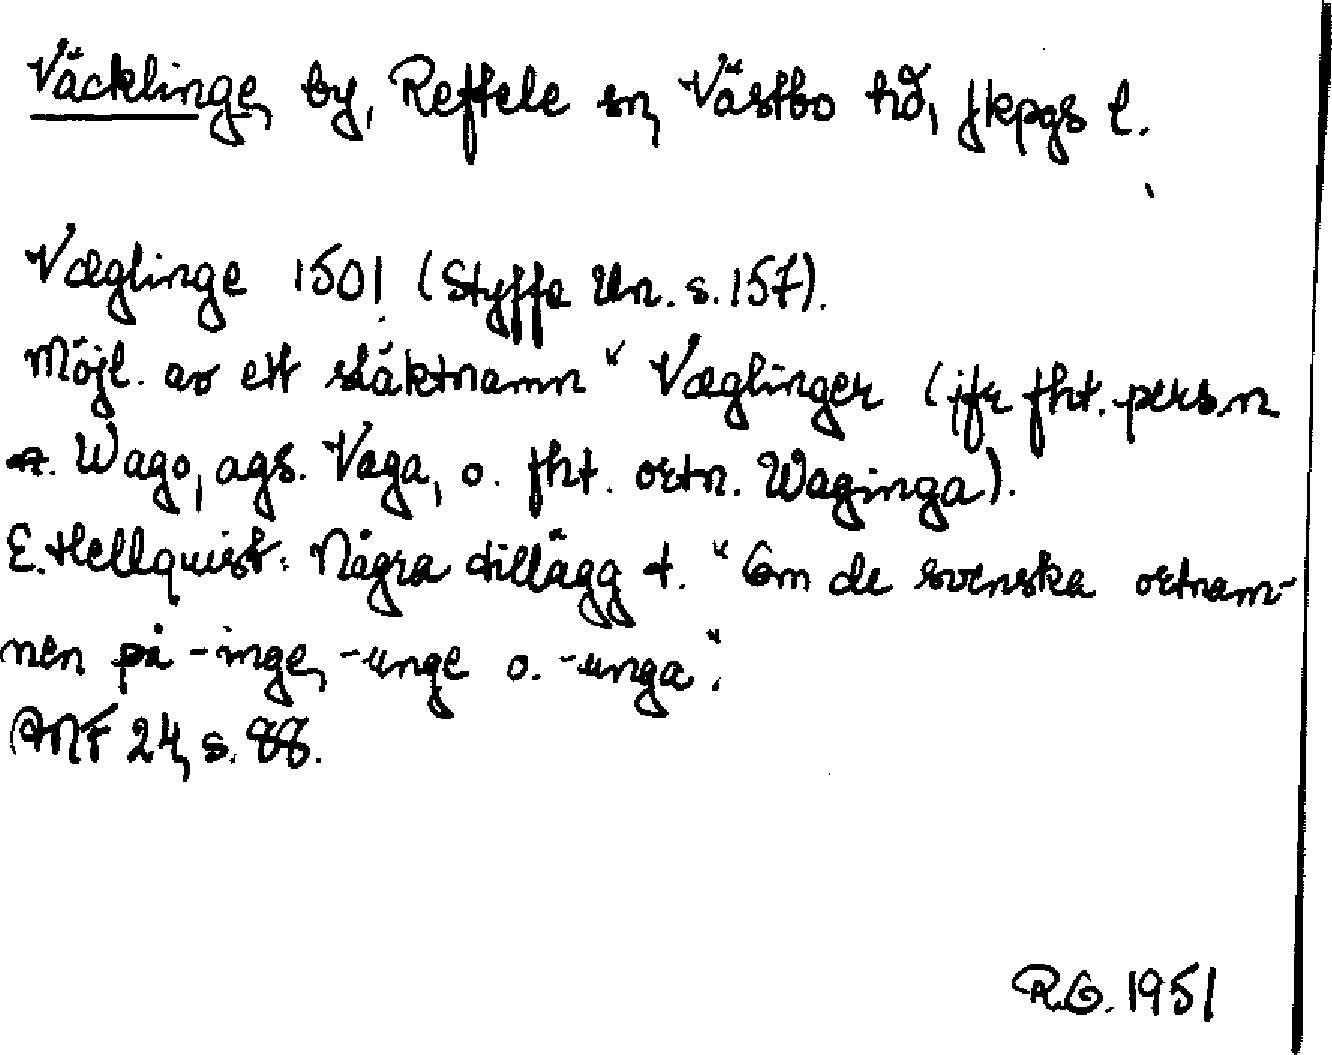 Väcklinge, by, Reftele sn, Västbo hd, Jkpgs l.
Væglinge 1501 (Styffe Un. s. 157).
Möjl. av ett släktnamn * Væglinger (jfr fht. persn.
Wago, ags. Vaga, o. fht. ortn. Waginga).
E. Hellquist: Några tillägg t. "Om de svenska ortnam-
nen på -inge, -unge o. -unga".
ANF 24, s. 88.
R.G. 1951